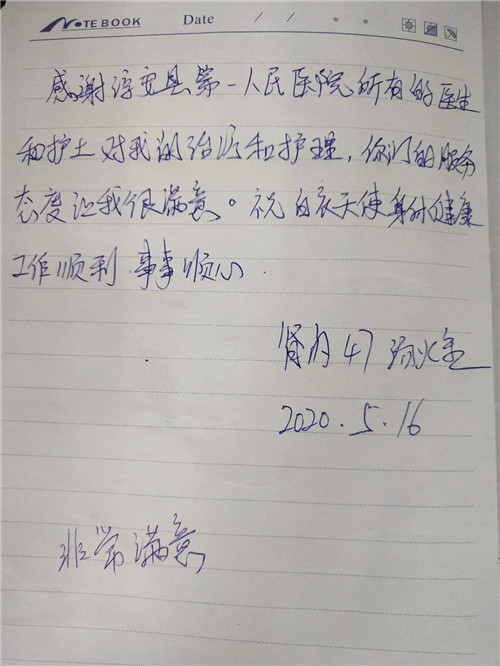 NOTEBOOK Date / /
感谢淳安县第一人民医院所有的医生
和护士对我的治疗和护理，你们的服务
态度让我很满意。祝白衣天使身体健康
工作顺利 事事顺心
肾内 47
2020.5.16
非常满意